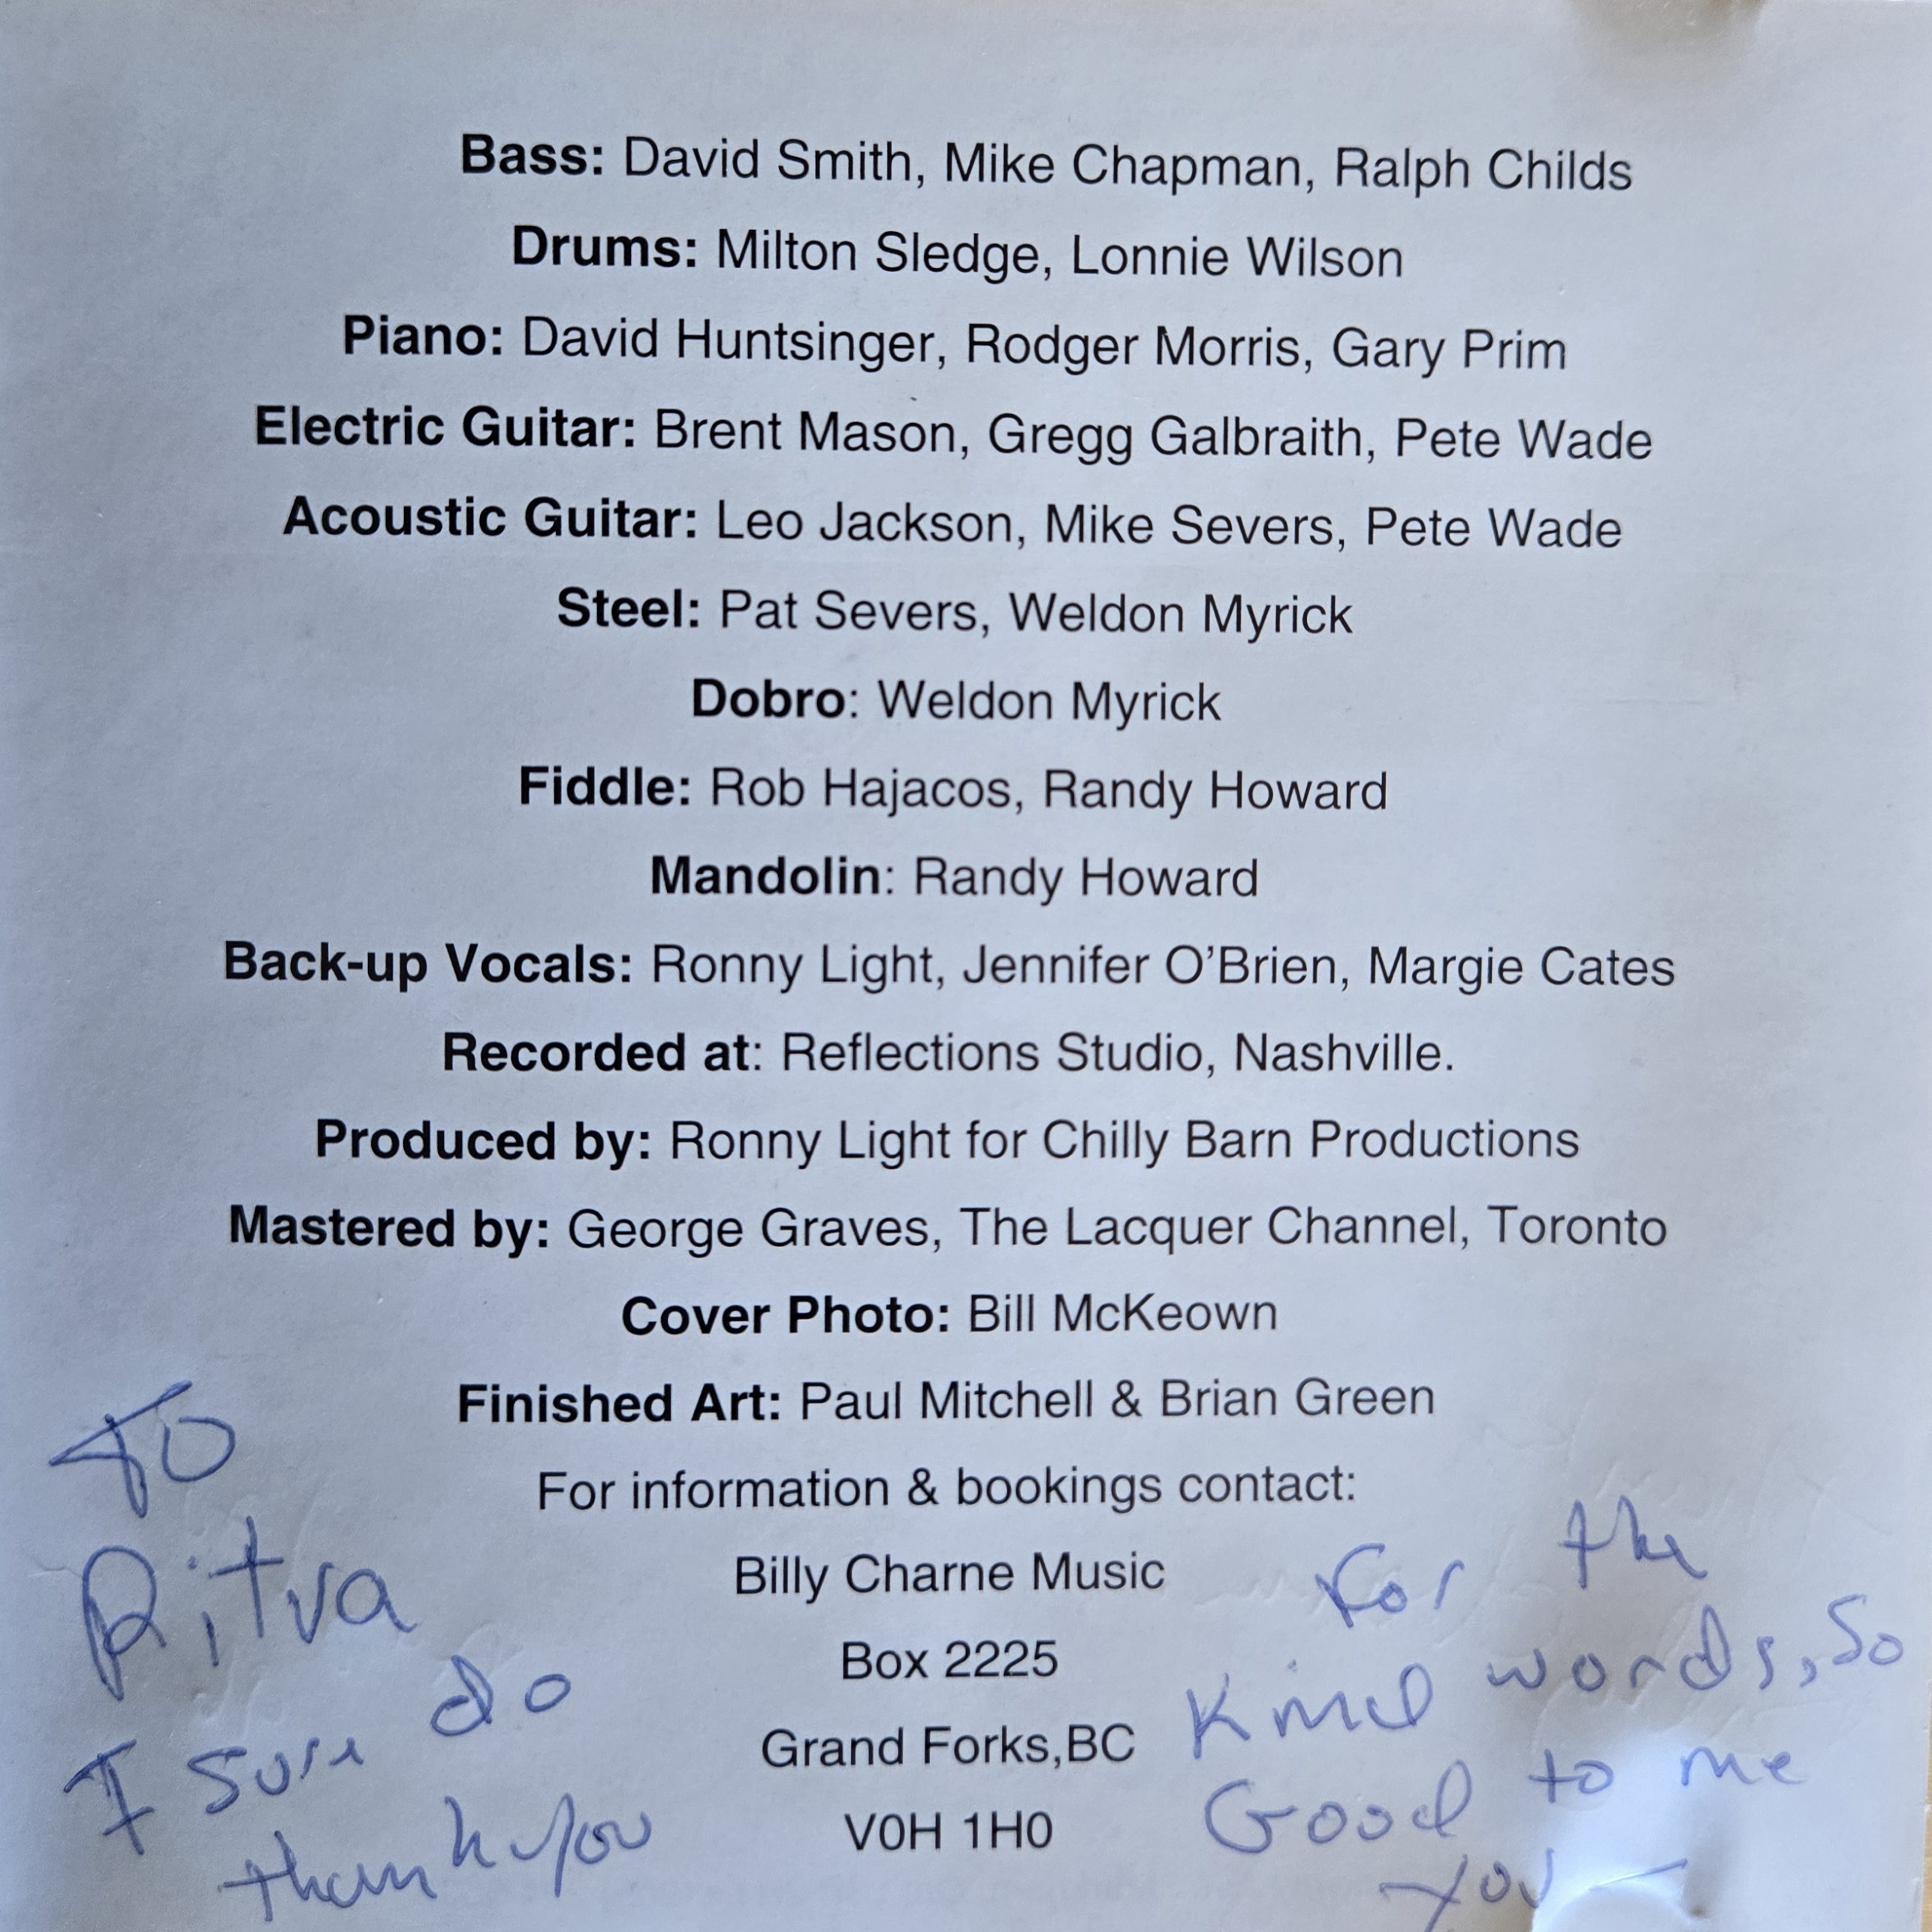 Bass: David Smith, Mike Chapman, Ralph Childs
Drums: Milton Sledge, Lonnie Wilson
Piano: David Huntsinger, Rodger Morris, Gary Prim
Electric Guitar: Brent Mason, Gregg Galbraith, Pete Wade
Acoustic Guitar: Leo Jackson, Mike Severs, Pete Wade
Steel: Pat Severs, Weldon Myrick
Dobro: Weldon Myrick
Fiddle: Rob Hajacos, Randy Howard
Mandolin: Randy Howard
Back-up Vocals: Ronny Light, Jennifer O'Brien, Margie Cates
Recorded at: Reflections Studio, Nashville.
Produced by: Ronny Light for Chilly Barn Productions
Mastered by: George Graves, The Lacquer Channel, Toronto
Cover Photo: Bill McKeown
Finished Art: Paul Mitchell & Brian Green
For information & bookings contact:
Billy Charne Music
Box 2225
Grand Forks,BC
V0H 1H0
To
Ritva
I sure do
thank you
For the
Kind words, So
Good to me
you